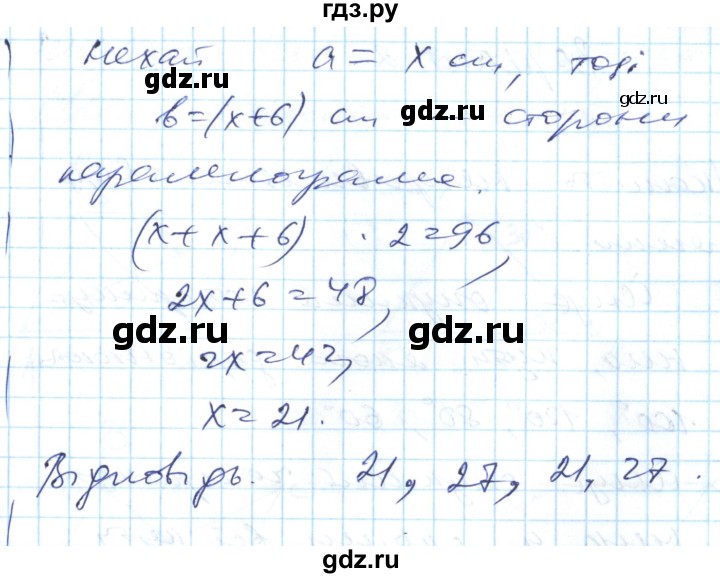 гдз.ру
Нехай a = x см, тоді
gdz.ru
b=(x+6) см gdz.ru сторони
паралелограма.
(x+x+6) · 2=96,
2x+6=48,
gdz.ru gdz.ru
2x=42,
x=21.
Відповідь. 21, 27, 21, 27.
gdz.ru gdz.ru
gdz.ru